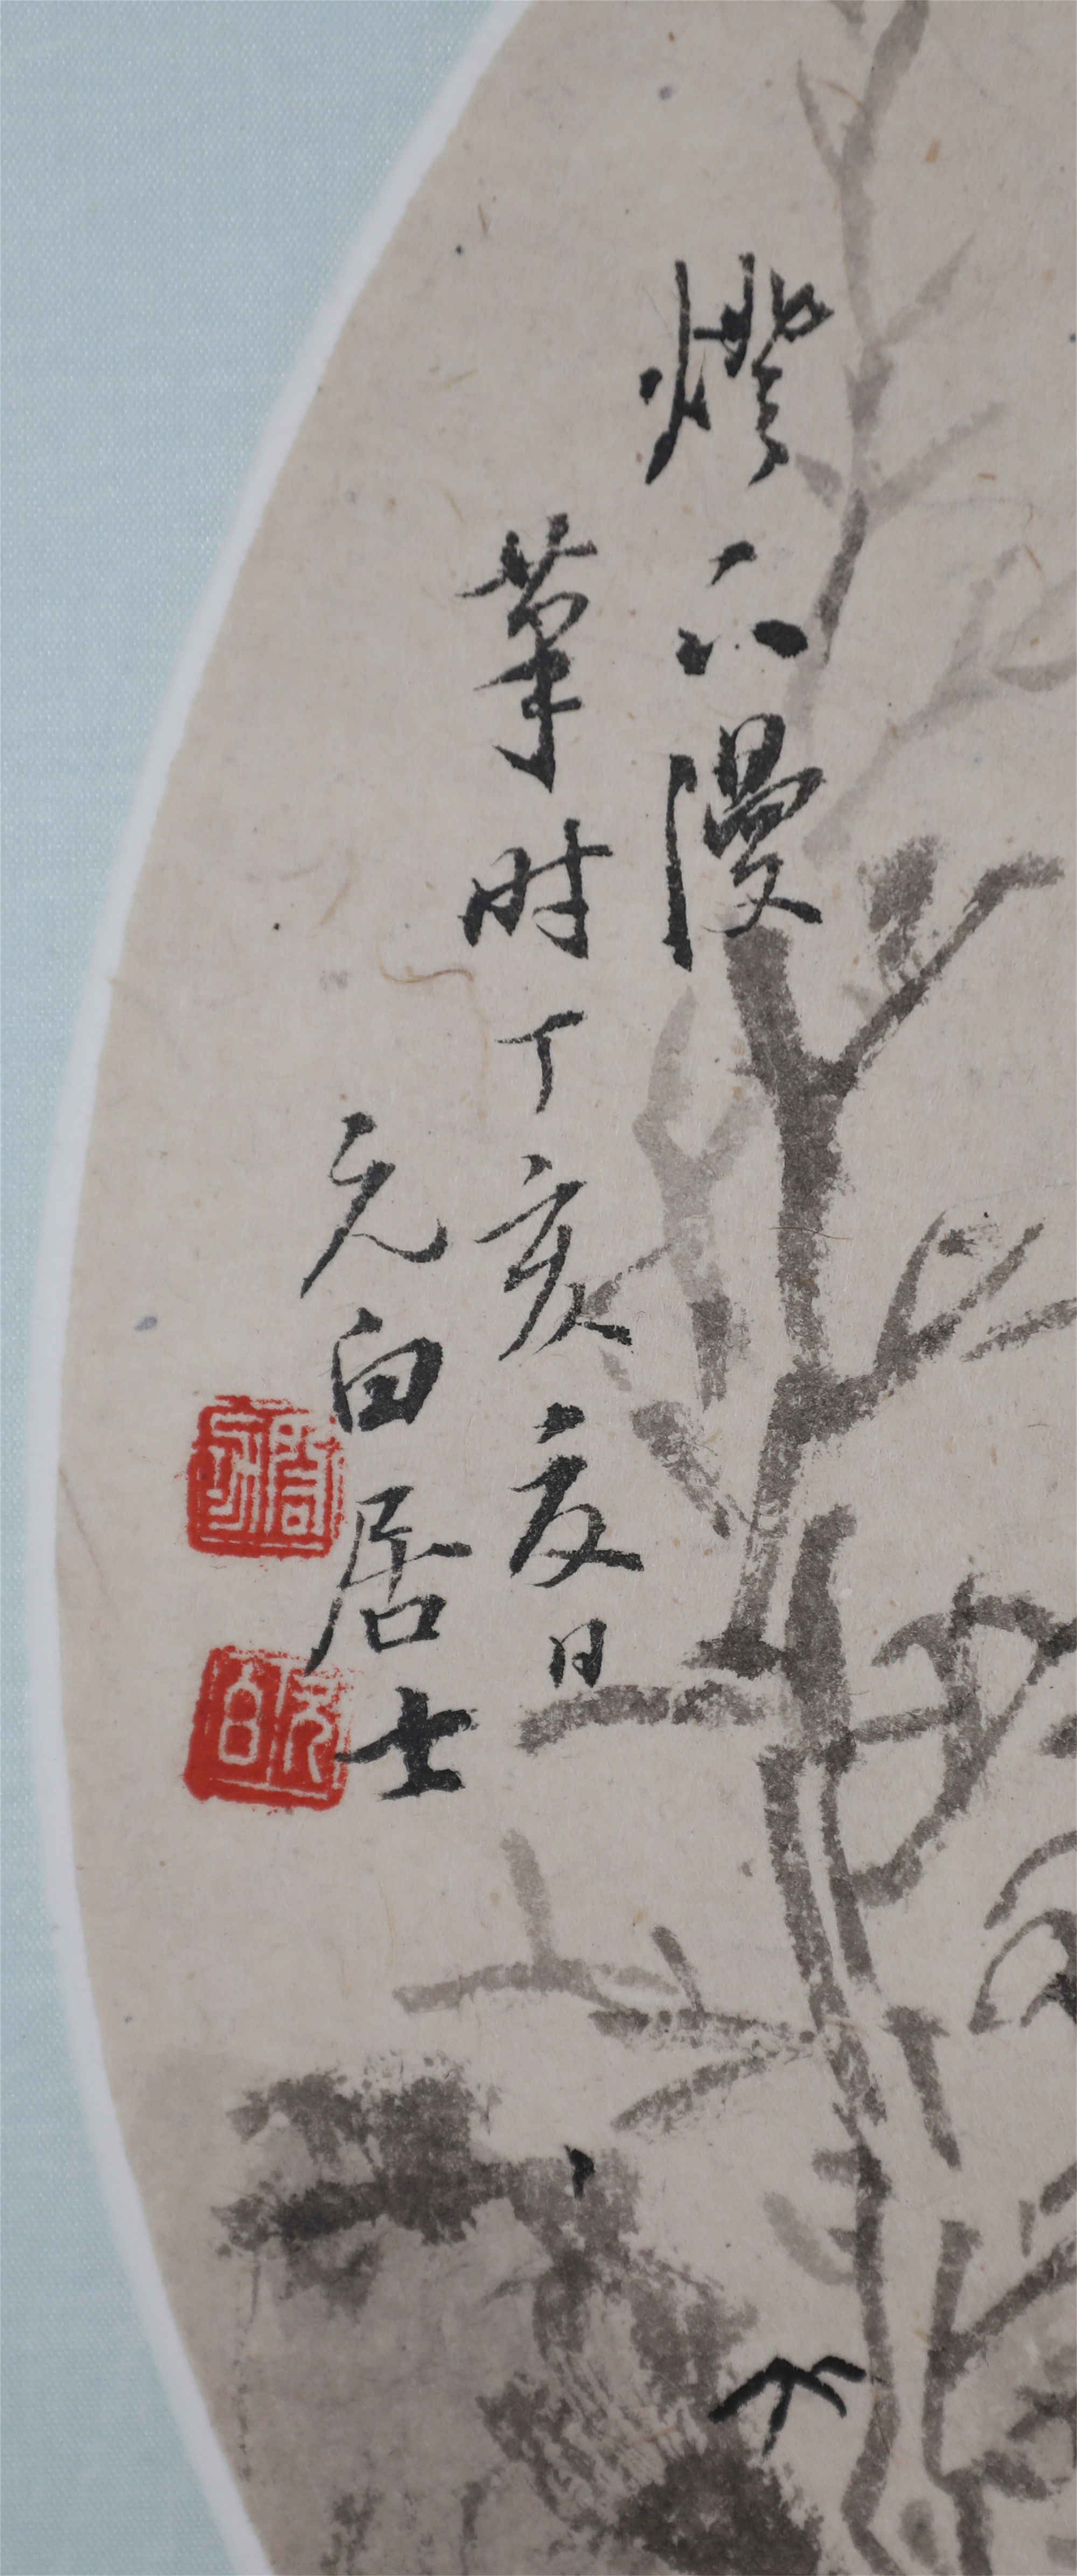 燈下漫
筆时丁亥夏日
元白居士
元白